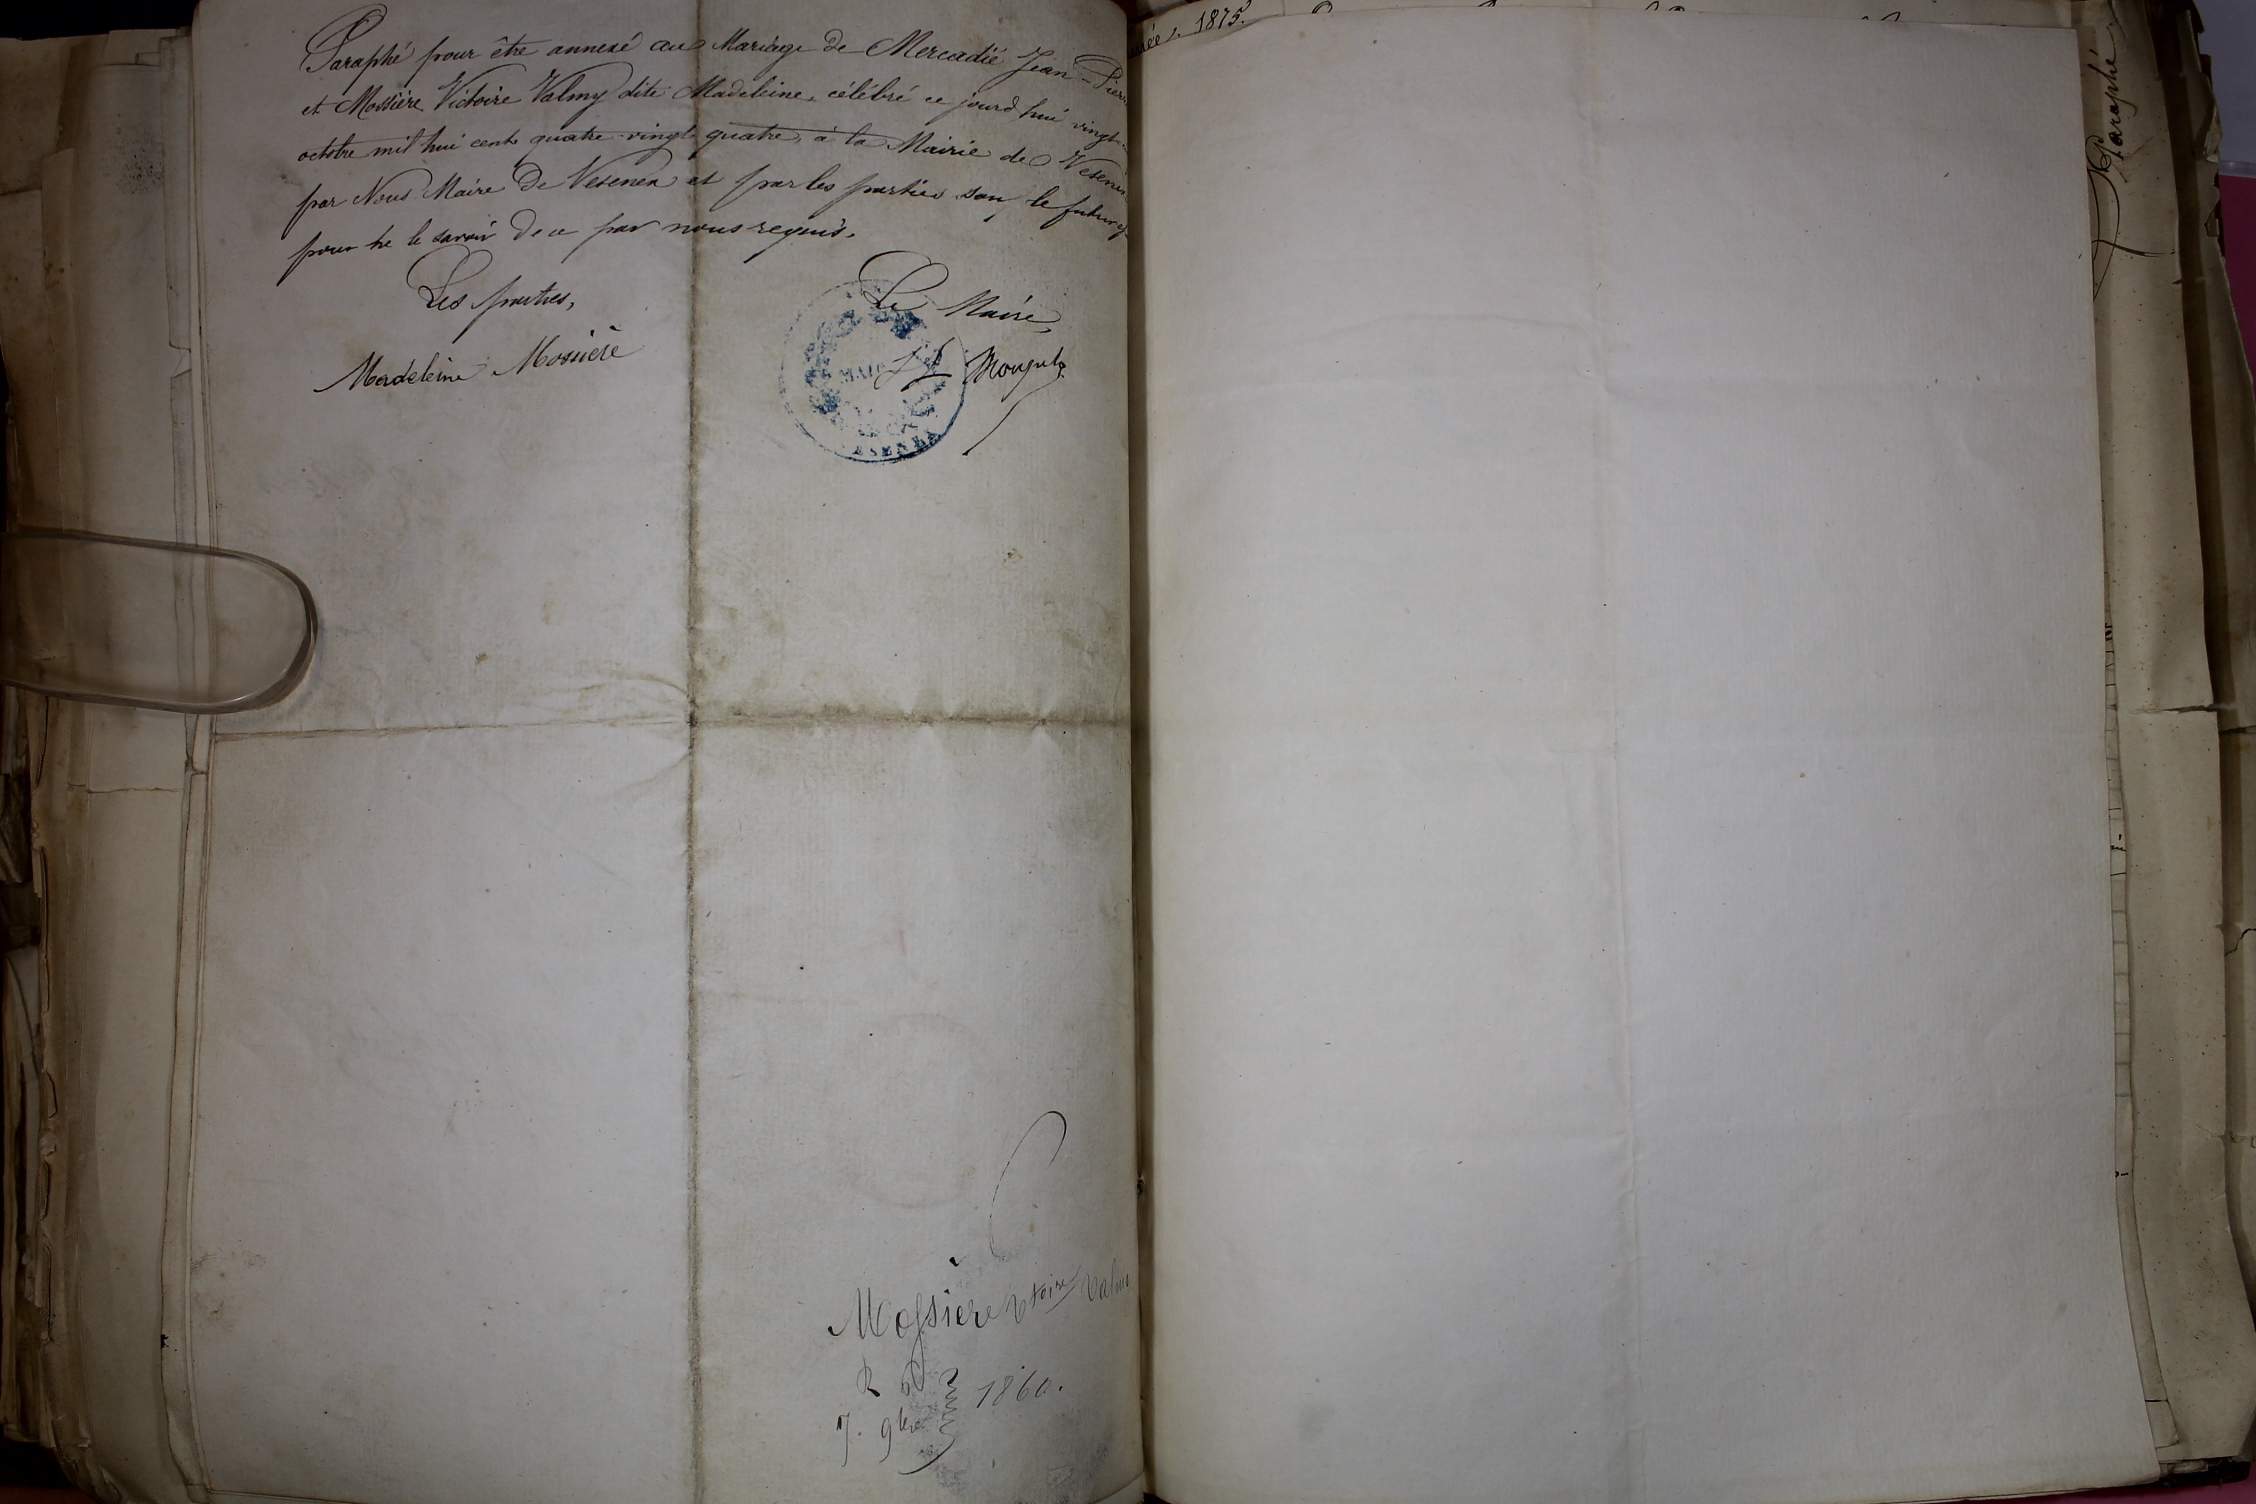 Paraphé pour être annexé au Mariage de Mercadié Jean-Pierre
et Mossière Victoire Valmy dite Madeleine, célébré ce jourd'hui vingt
octobre mil hui cent quatre-vingt quatre, à la Mairie de Vesenex
par Nous Maire De Vesenex et par les parties sauf le futur
pour ne le savoir De ce par nous requis.
Les parties,
Le Maire,
Madeleine Mossière
MAI
ESENEX
Mossiere Vtoire Valm
R
7. 9bre 1860.
1875.
Paraphé